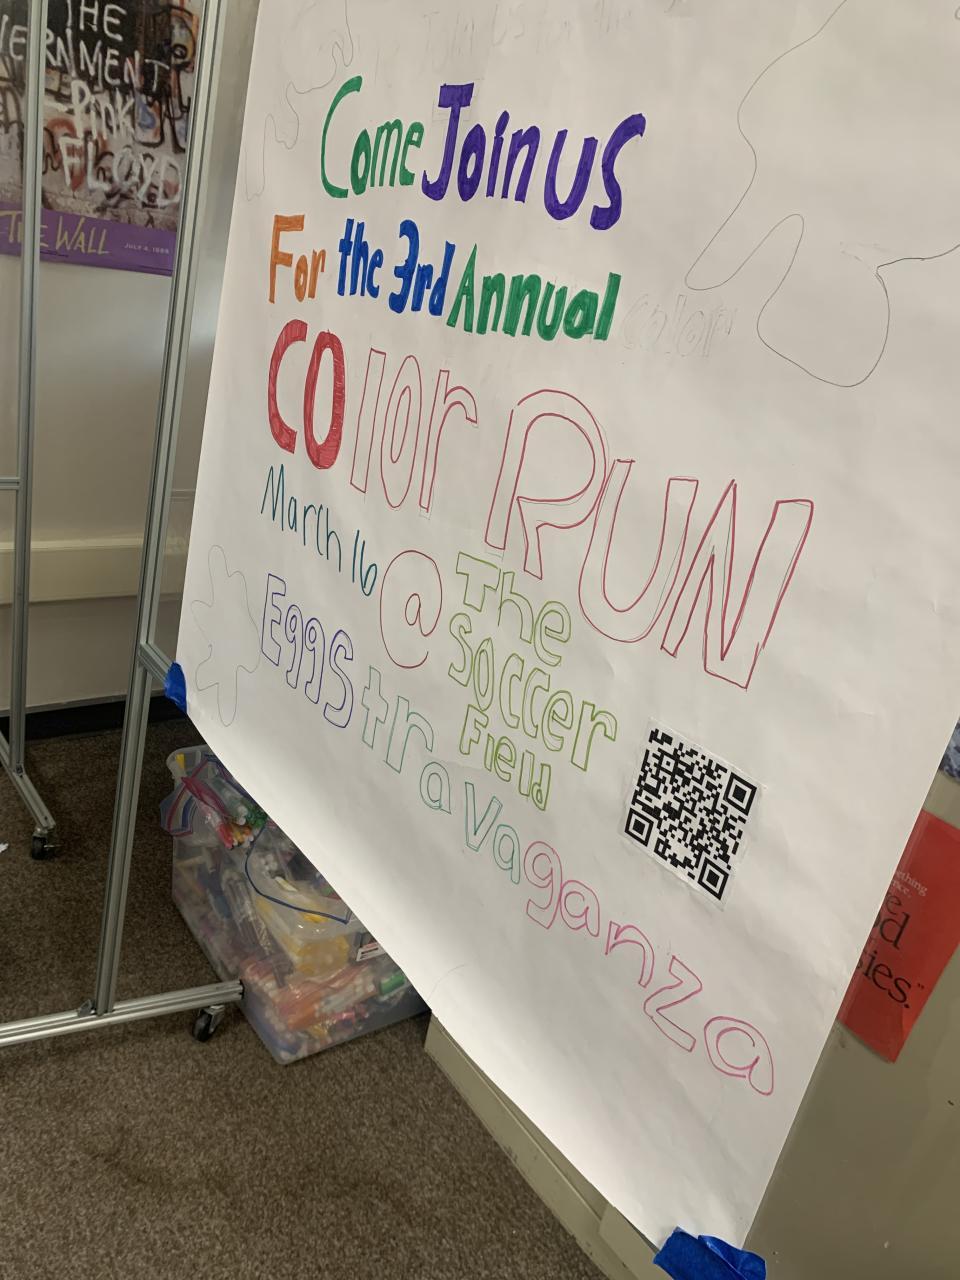 THE
VERNMENT
PINK
FLOYD
THE WALL
JULY 4, 1989
Come Join US
For the 3rd Annual color
COlor RUN
March 16 @ The
Soccer
Field
Eggs tra Vaganza
ething
ence.
e
d
sies."